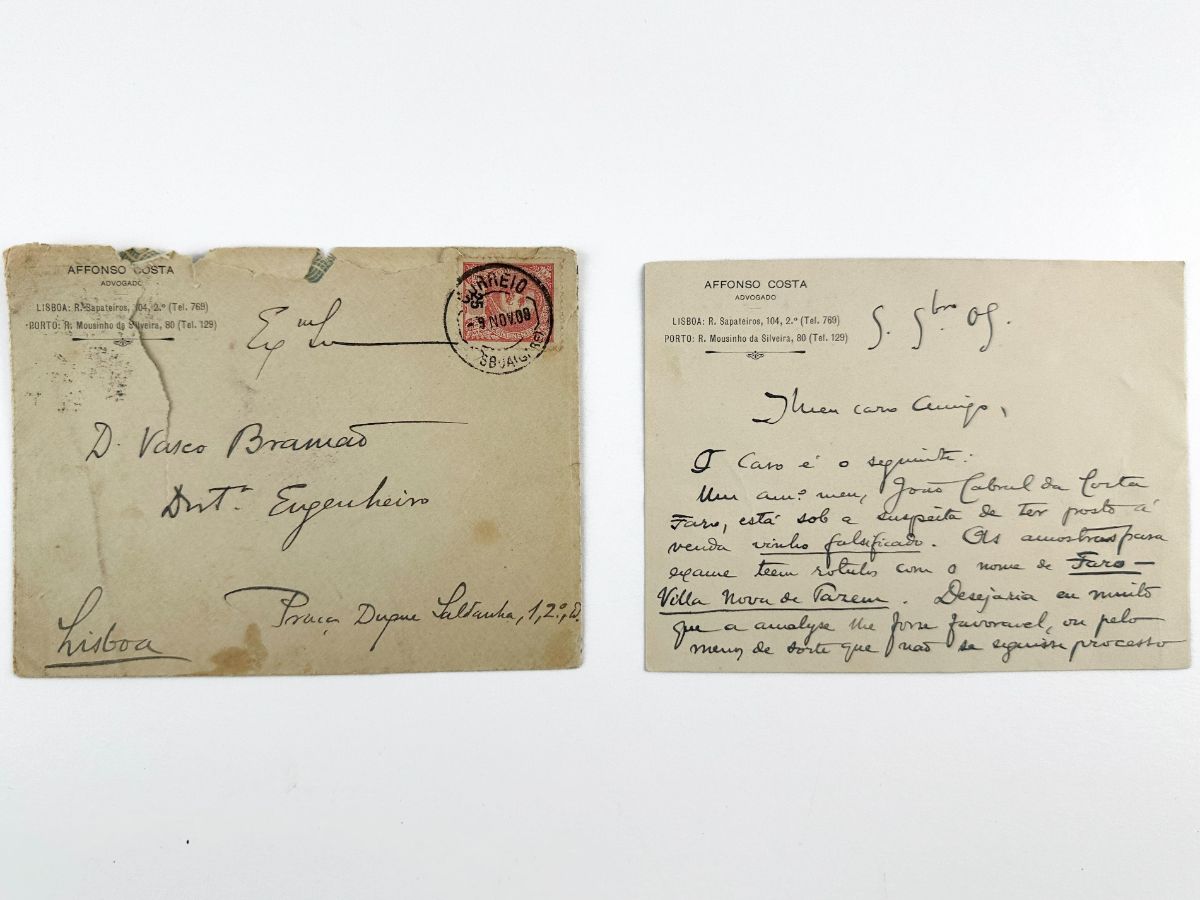 AFFONSO COSTA
ADVOGADO
LISBOA: R. Sapateiros, 104, 2.º (Tel. 769)
PORTO: R. Mousinho da Silveira, 80 (Tel. 129)
CORREIO
9 NOV. 09
Ex.mo Sr.
D. Vasco Bramão
Dist.º Engenheiro
Praça Duque Saldanha, 1, 2.º, D.
Lisboa
AFFONSO COSTA
ADVOGADO
LISBOA: R. Sapateiros, 104, 2.º (Tel. 769)
PORTO: R. Mousinho da Silveira, 80 (Tel. 129)
9. 9bro 09.
Meu caro Amigo,
O caso é o seguinte:
Um am.º meu, João Cabral da Costa
Faro, está sob a suspeita de ter posto á
venda vinho falsificado. As amostras para
exame teem rotulos com o nome de Faro —
Villa Nova de Tazem. Desejaria eu muito
que a analyse lhe fosse favoravel, ou pelo
menos de sorte que não se seguisse processo